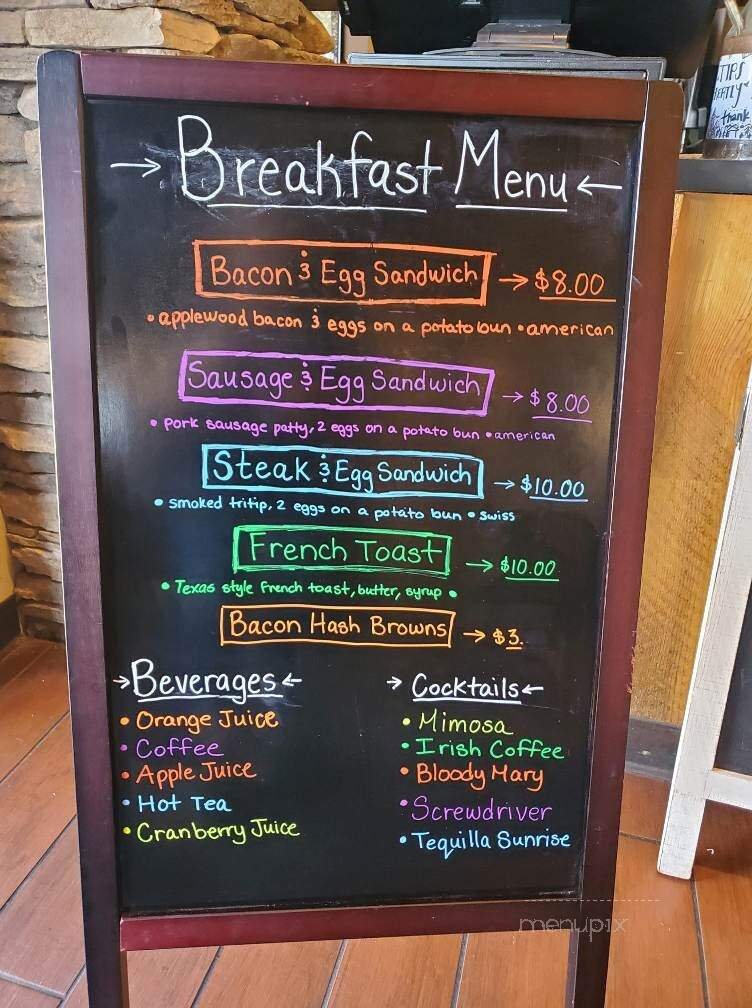 → Breakfast Menu ←
Bacon & Egg Sandwich → $8.00
• applewood bacon & eggs on a potato bun • american
Sausage & Egg Sandwich → $8.00
• pork sausage patty, 2 eggs on a potato bun • american
Steak & Egg Sandwich → $10.00
• smoked tritip, 2 eggs on a potato bun • swiss
French Toast → $10.00
• Texas style french toast, butter, syrup •
Bacon Hash Browns → $3.
→ Beverages ←
• Orange Juice
• Coffee
• Apple Juice
• Hot Tea
• Cranberry Juice
→ Cocktails ←
• Mimosa
• Irish Coffee
• Bloody Mary
• Screwdriver
• Tequilla Sunrise
TIPS
thank
menupix